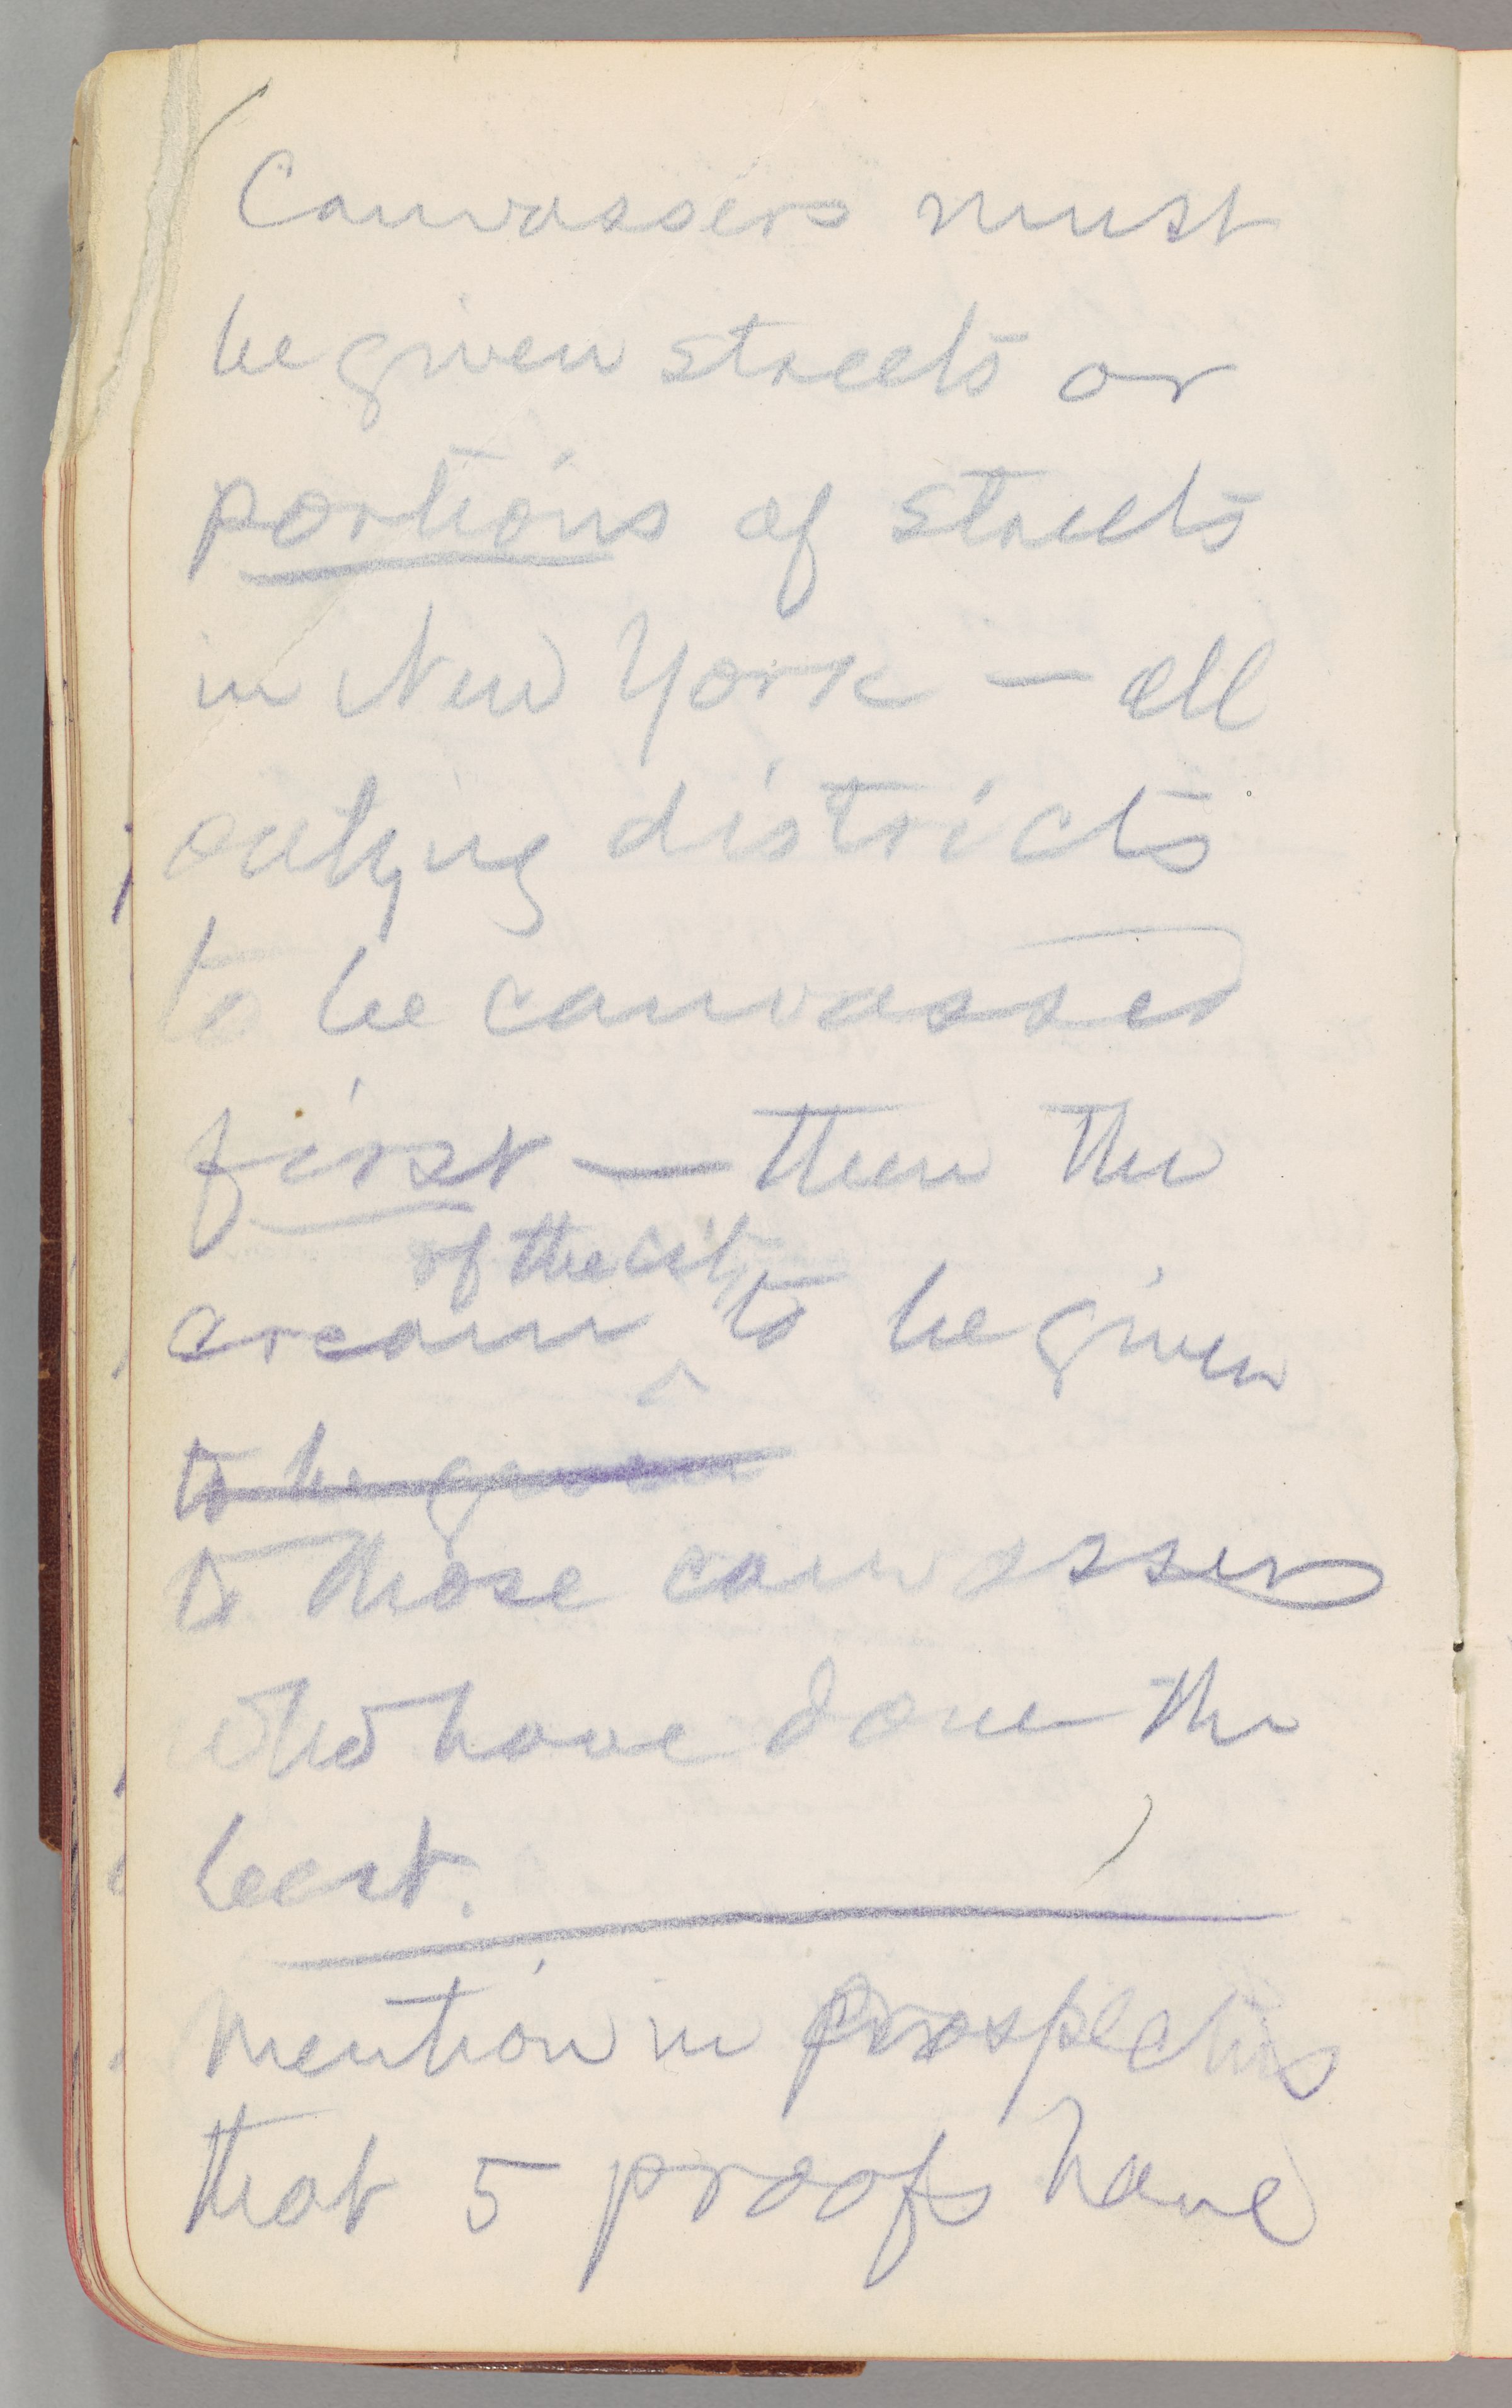 Canvassers must
be given streets or
portions of streets
in New York — all
outlying districts
to be canvassed
first — then the
of the city
cream to be given
to be given
to those canvassers
who have done the
best.
Mention in Prospectus
that 5 proofs have